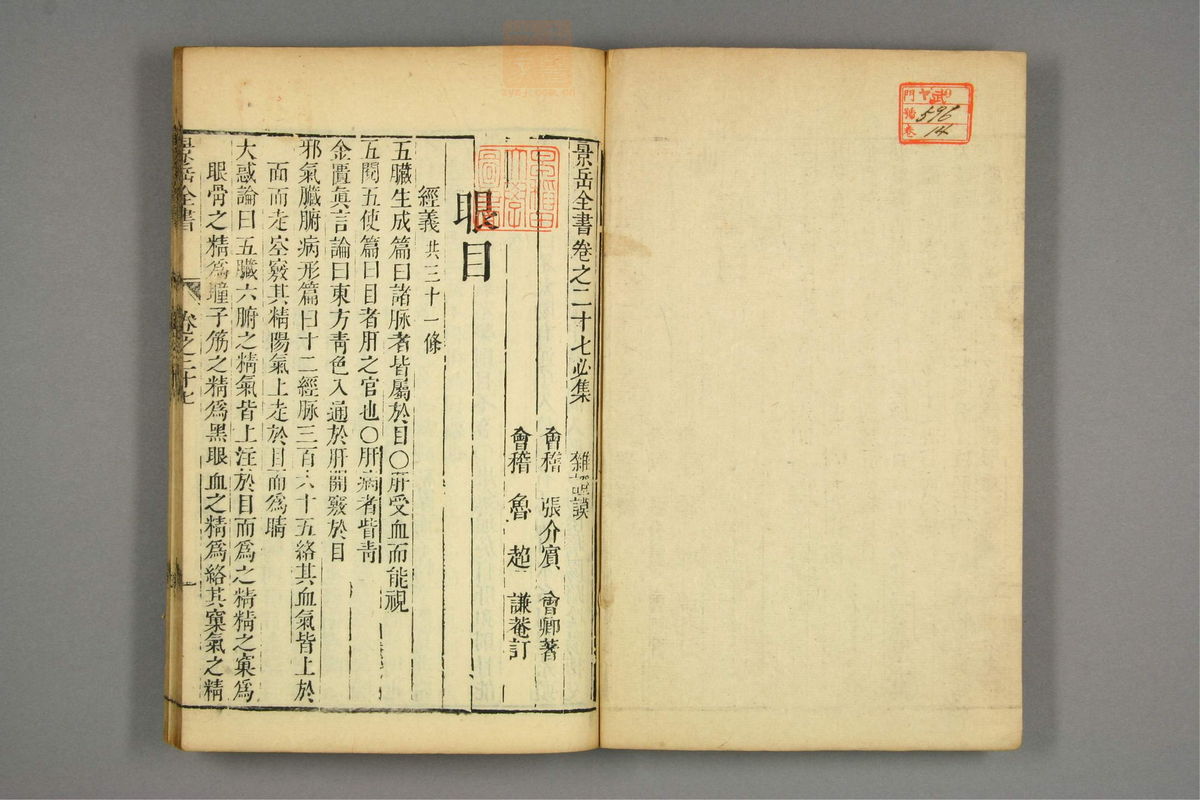 門 號 卷
武
596
14
景岳全書卷之二十七必集 雜證謨
會稽 張介賓 會卿著
會稽 魯 超 謙菴訂
眼目
經義共三十一條
五臟生成篇曰諸脈者皆屬於目〇肝受血而能視
五閱五使篇曰目者肝之官也〇肝病者眥青
金匱眞言論曰東方青色入通於肝開竅於目
邪氣臟腑病形篇曰十二經脈三百六十五絡其血氣皆上於
面而走空竅其精陽氣上走於目而爲睛
大惑論曰五臟六腑之精氣皆上注於目而爲之精精之窠爲
眼骨之精爲瞳子筋之精爲黑眼血之精爲絡其窠氣之精
景岳全書 卷之二十七 一